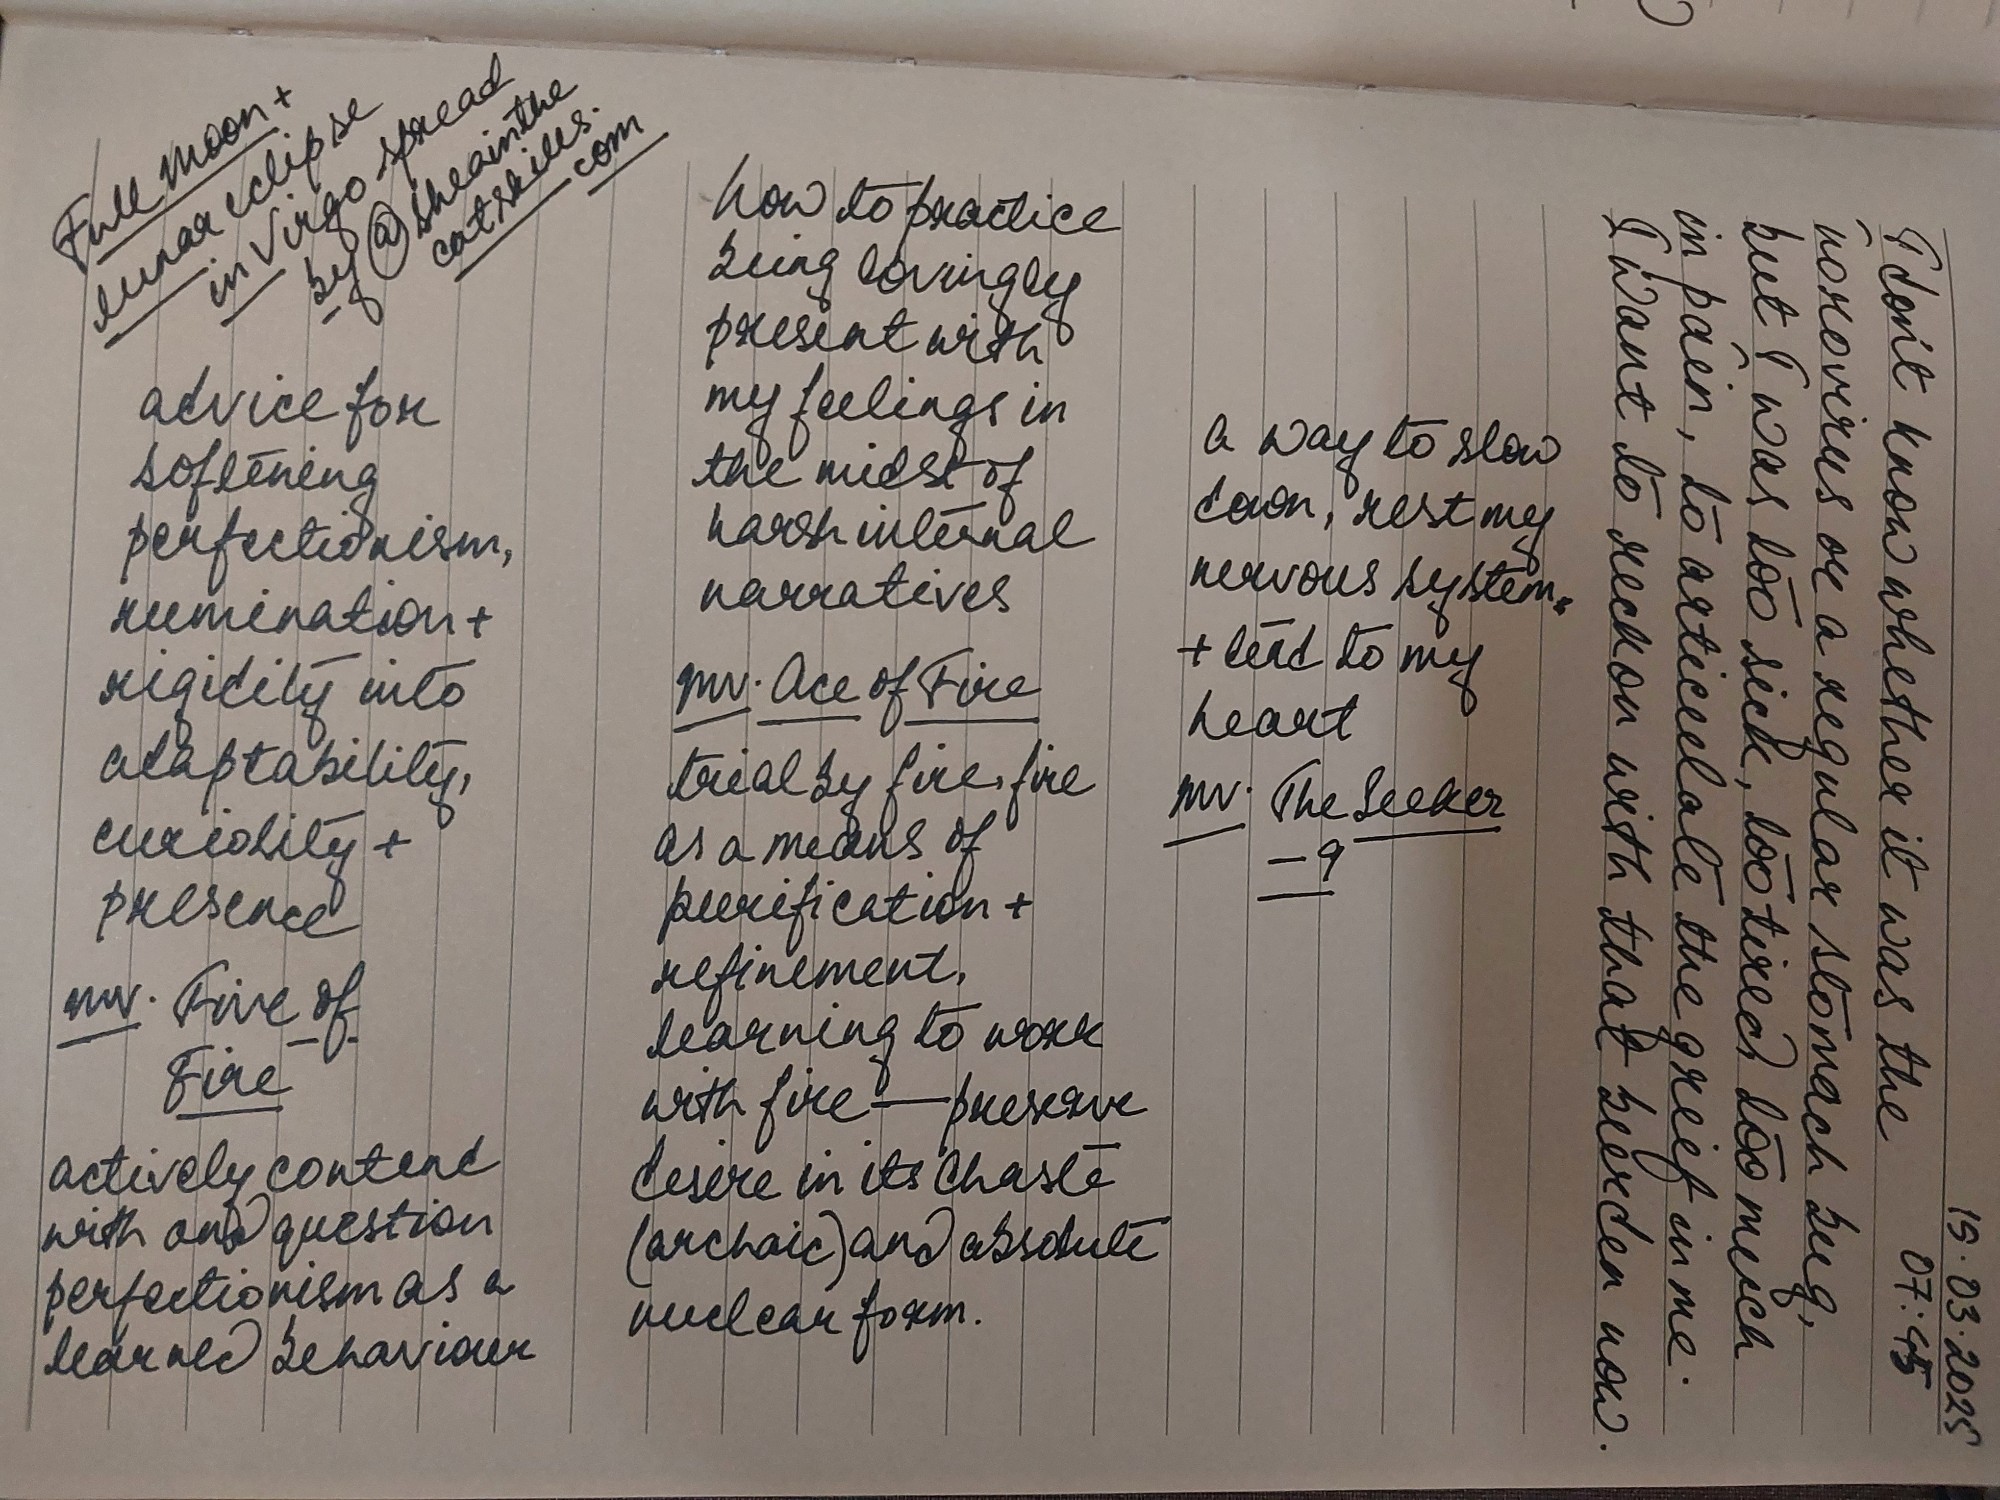 Full Moon +
lunar eclipse
in Virgo spread
by @sheainthe
catskills.
com
advice for
softening
perfectionism,
rumination +
rigidity into
adaptability,
curiosity +
presence
mv. Five of
Fire
actively contend
with and question
perfectionism as a
learned behaviour
how to practice
being lovingly
present with
my feelings in
the midst of
harsh internal
narratives
mv. Ace of Fire
trial by fire, fire
as a means of
purification +
refinement.
learning to work
with fire — preserve
desire in its chaste
(archaic) and absolute
nuclear form.
a way to slow
down, rest my
nervous system.
+ tend to my
heart
mv. The Seeker
— 9
15.03.2025
07:45
I don't know whether it was the
norovirus or a regular stomach bug,
but I was too sick, too tired, too much
in pain, to articulate the grief in me.
I want to reckon with that burden now.